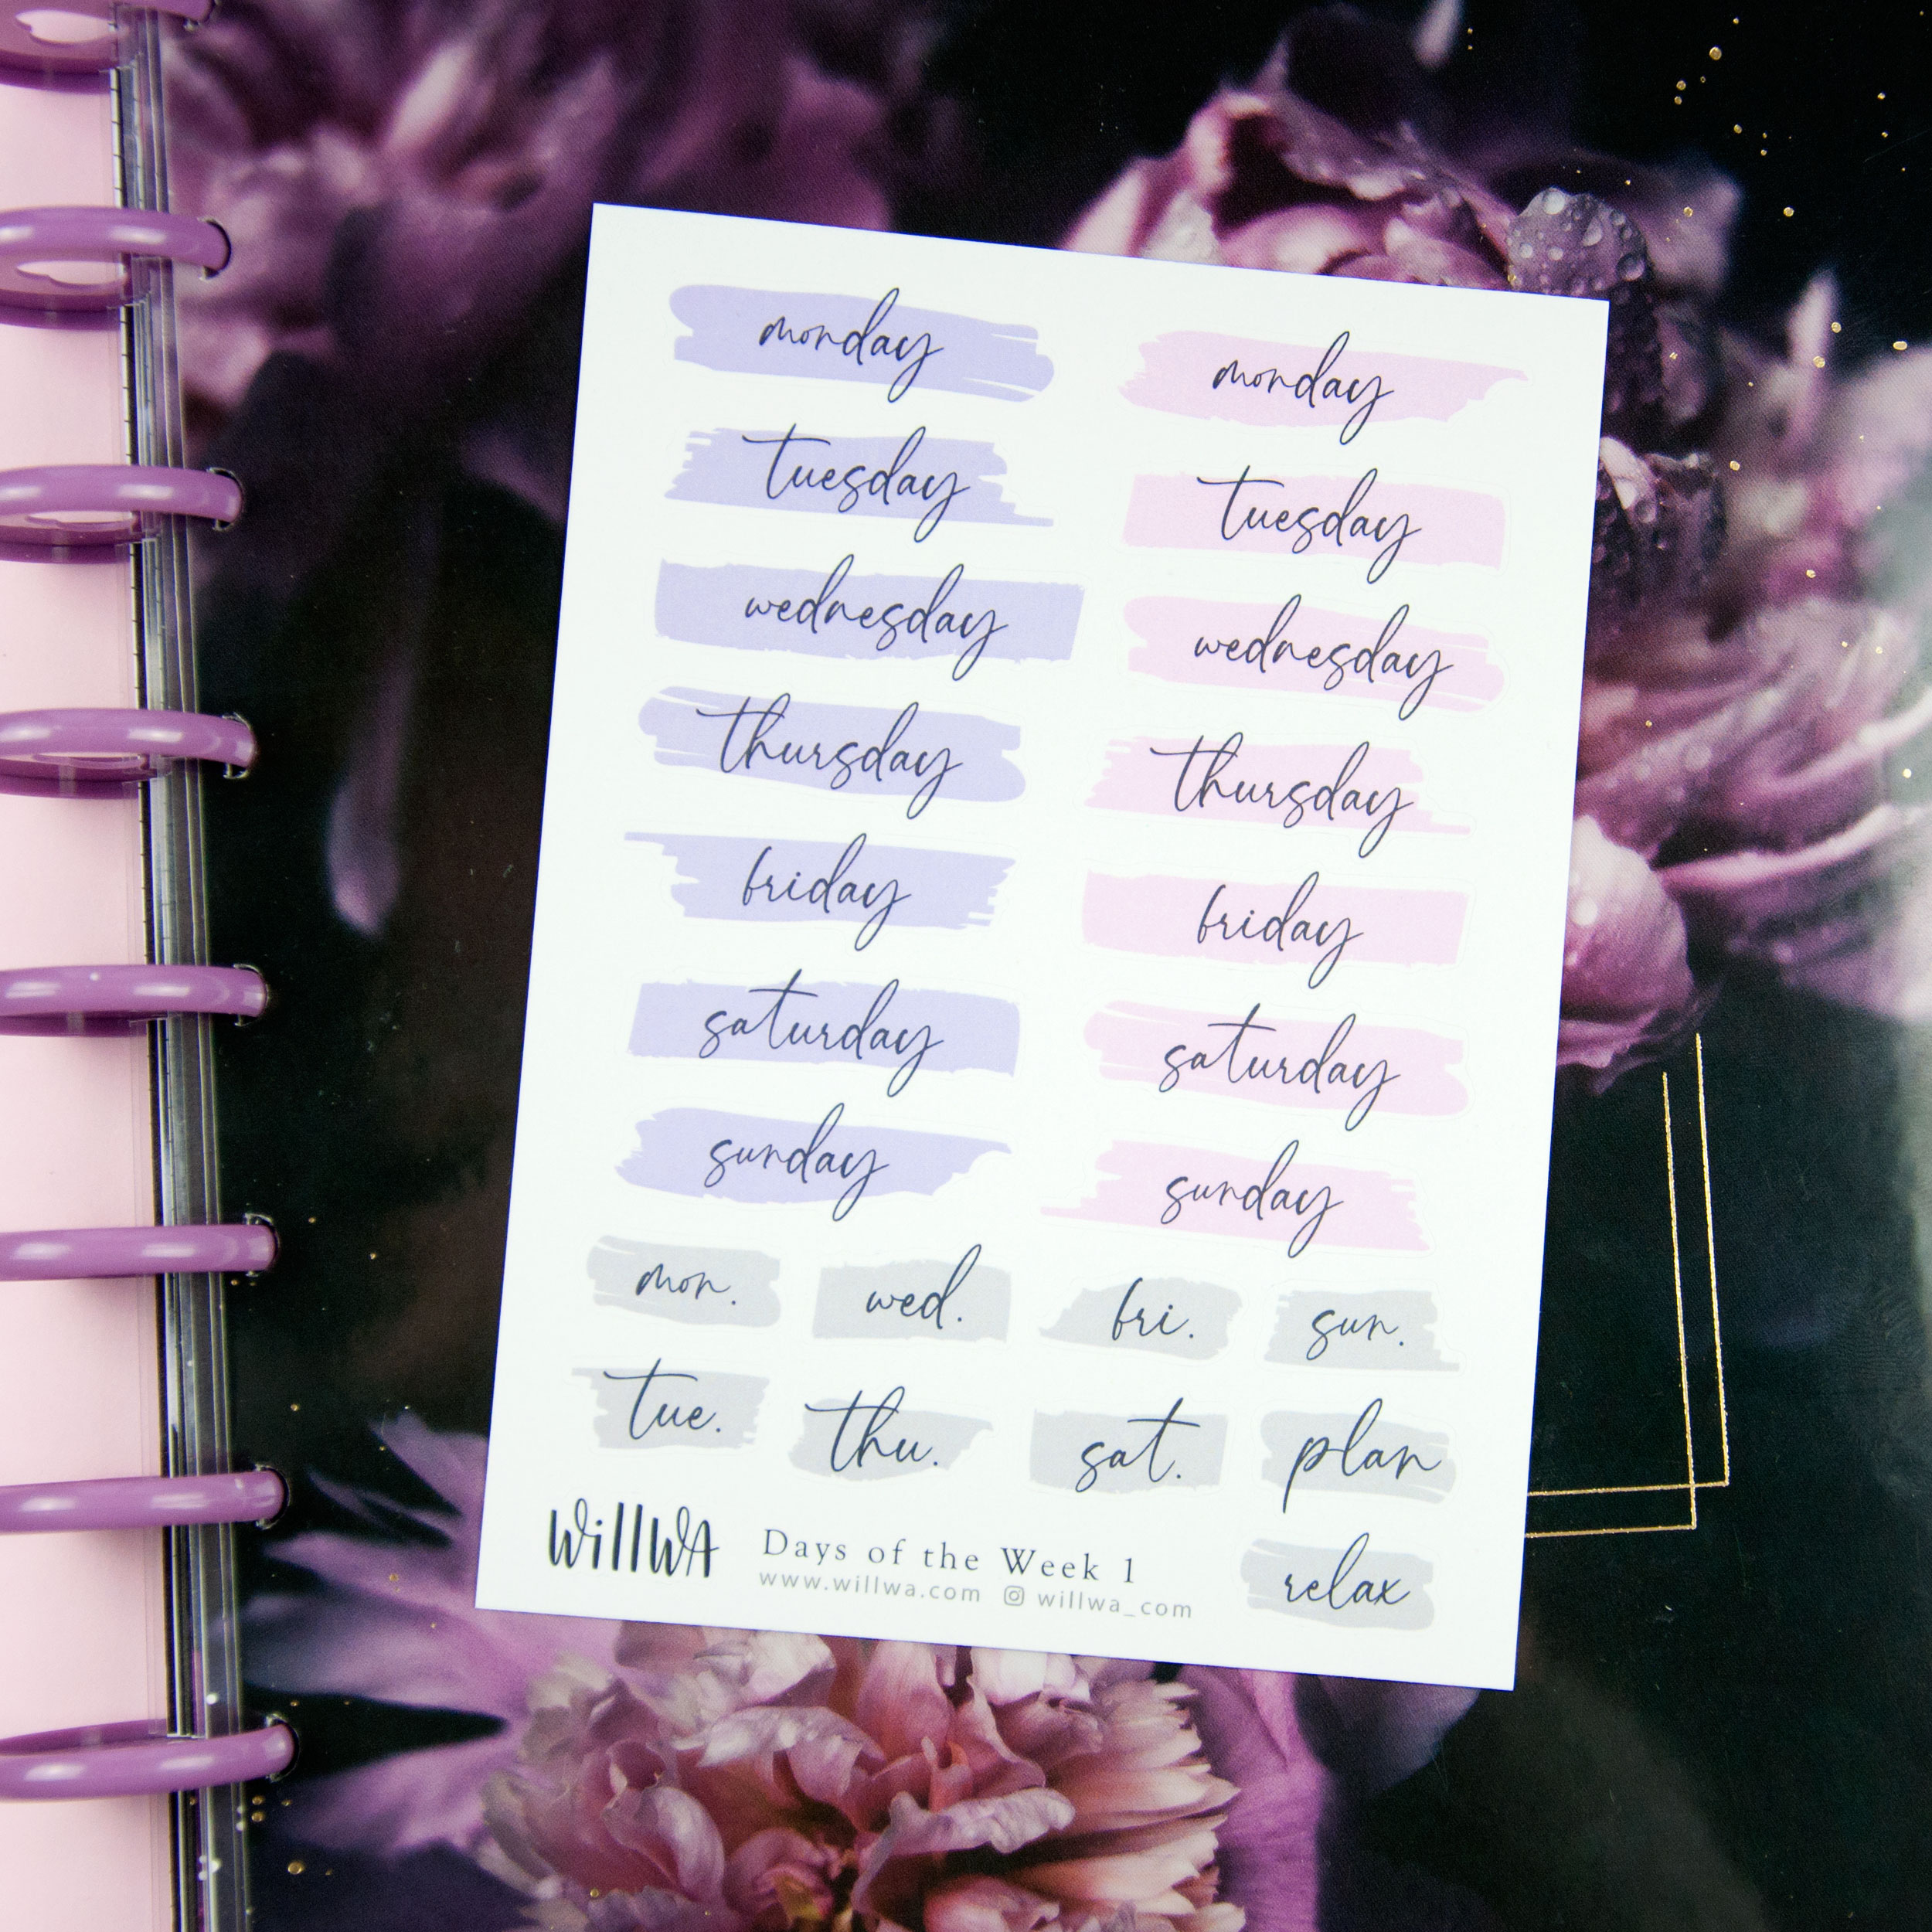 monday monday
tuesday tuesday
wednesday wednesday
thursday thursday
friday friday
saturday saturday
sunday sunday
mon. wed. fri. sun.
tue. thu. sat. plan
willwa Days of the Week 1
www.willwa.com willwa_com
relax